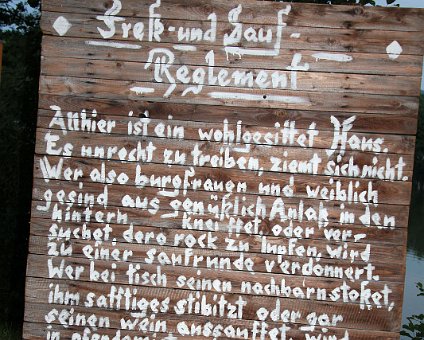 Freß-und Sauf-
Reglement
Allhier ist ein wohlgesittet Haus.
Es unrecht zu treiben, ziemt sich nicht.
Wer also burgfrauen und weiblich
gesind aus genüßlich Anlaß in den
hintern kneiffet, oder ver-
suchet dero rock zu lupfen, wird
zu einer saufrunde verdonnert.
Wer bei tisch seinen nachbarn stoket,
ihm safftiges stibitzt oder gar
seinen wein aussauffet, wird